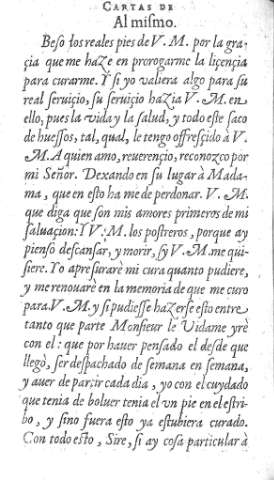 CARTAS DE
Al mismo.
Beso los reales pies de V. M. por la gra-
çia que me haze en prorogarme la liçençia
para curarme. Y si yo valiera algo para su
real seruiçio, su seruiçio hazia V. M. en
ello, pues la vida y la salud, y todo este saco
de huessos, tal, qual, le tengo offresçido à V.
M. A quien amo, reuerençio, reconozco por
mi Señor. Dexando en su lugar à Mada-
ma, que en esto ha me de perdonar. V. M.
que diga que son mis amores primeros de mi
saluaçion: I V; M. los postreros, porque ay
pienso descansar, y morir, sy V. M. me qui-
siere. Yo apresurarè mi cura quanto pudiere,
y me renouarè en la memoria de que me curo
para V. M. y si pudiesse hazerse esto entre
tanto que parte Monsieur le Vidame yrè
con el: que por hauer pensado el desde que
llegò, ser despachado de semana en semana,
y auer de partir cada dia, yo con el cuydado
que tenia de boluer tenia el vn pie en el estri-
bo, y sino fuera esto ya estubiera curado.
Con todo esto, Sire, si ay cosa particular à